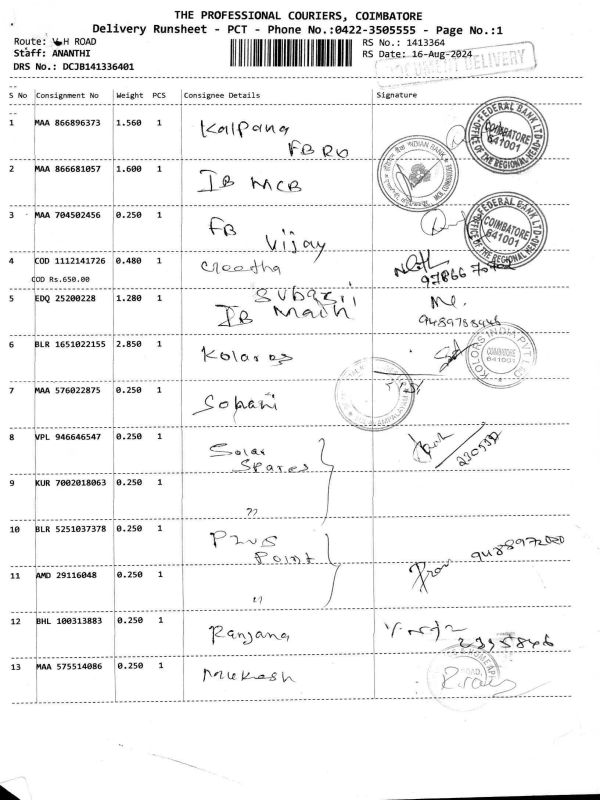 THE PROFESSIONAL COURIERS, COIMBATORE
Delivery Runsheet - PCT - Phone No.:0422-3505555 - Page No.:1
Route: H ROAD
RS No.: 1413364
Staff: ANANTHI
RS Date: 16-Aug-2024
DRS No.: DCJB141336401
DOCUMENT DELIVERY
--
S No Consignment No Weight PCS Consignee Details Signature
--
1 MAA 866896373 1.560 1 Kalpana
FB RO
FEDERAL BANK LTD
COIMBATORE
641001
OFFICE OF THE REGIONAL HEAD
2 MAA 866681057 1.600 1 IB MCB
INDIAN BANK
MCB, COIMBATORE
3 MAA 704502456 0.250 1 FB
Vijay
FEDERAL BANK LTD
COIMBATORE
641001
OFFICE OF THE REGIONAL HEAD
4 COD 1112141726 0.480 1 Creedha
COD Rs.650.00
97866
Subasri
5 EDQ 25200228 1.280 1 IB Main
9489788946
6 BLR 1651022155 2.850 1 Kolaras
KOLORS INDIA PVT LTD
COIMBATORE
641001
7 MAA 576022875 0.250 1 Sopani
8 VPL 946646547 0.250 1 Solar
Spares
9 KUR 7002018063 0.250 1 ״
10 BLR 5251037378 0.250 1 Plus
Point
11 AMD 29116048 0.250 1 ״
12 BHL 100313883 0.250 1 Ranjana
2395846
13 MAA 575514086 0.250 1 Mukesh